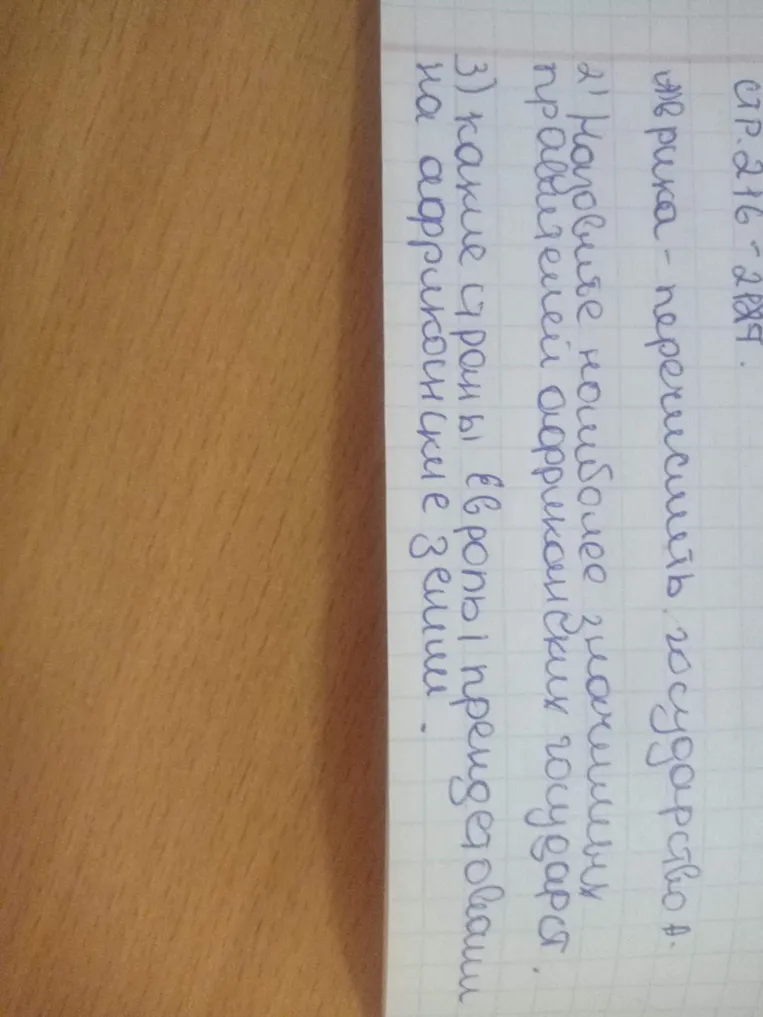 стр. 216 -
Африка - перечислить государство А.
2) Назовите наиболее значимых
правителей африканских государст.
3) какие страны Европы прендетовали
на африканские земли.